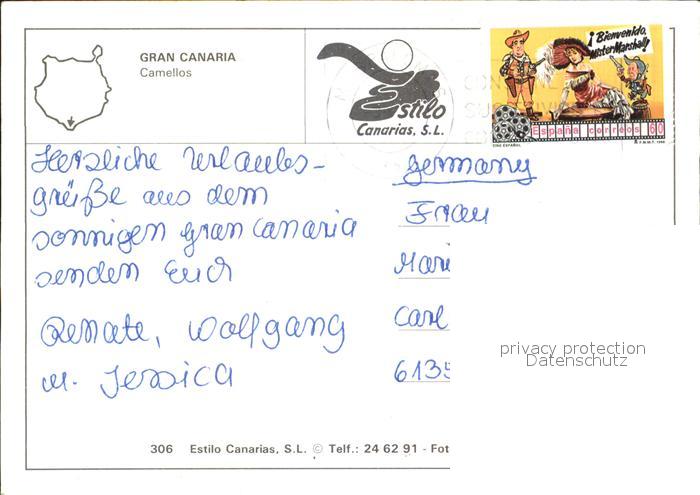 GRAN CANARIA
Camellos
Estilo
Canarias, S.L.
¡Bienvenido,
Mister Marshall!
España correos 60
CINE ESPAÑOL
F.N.M.T. 1996
Herzliche Urlaubs-
grüße aus dem
sonnigen Gran Canaria
senden Euch
Renate, Wolfgang
u. Jessica
Germany
Frau
Mari
Carl
6135
privacy protection
Datenschutz
306 Estilo Canarias, S.L. © Telf.: 24 62 91 - Fot